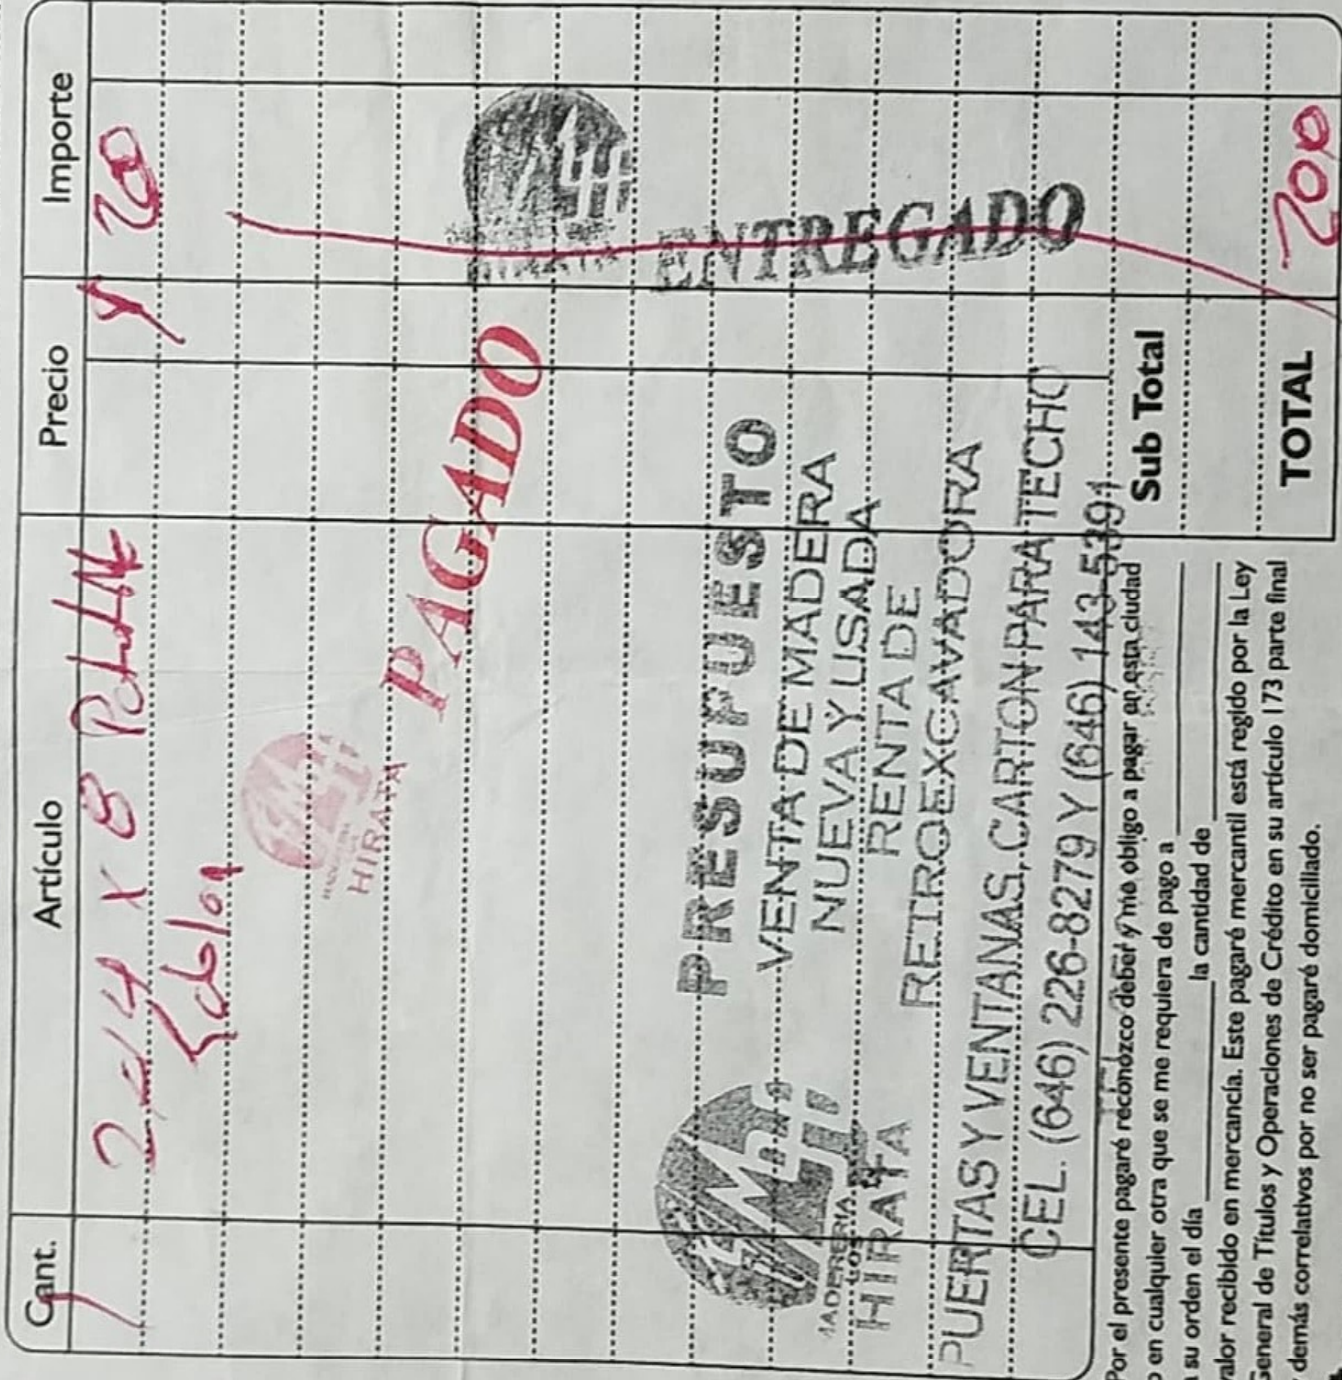 Cant. Artículo Precio Importe
1 2x14 x 8 $ 200
Tablon
HIRATA
PAGADO
HIRATA
ENTREGADO
PRESUPUESTO
VENTA DE MADERA
NUEVA Y USADA
RENTA DE
RETROEXCAVADORA
MADERERIA
LOS
HIRATA
PUERTAS Y VENTANAS, CARTON PARA TECHO
CEL. (646) 226-8279 Y (646) 143-5391
Por el presente pagaré reconozco deber y me obligo a pagar en esta ciudad
o en cualquier otra que se me requiera de pago a
a su orden el día la cantidad de
valor recibido en mercancía. Este pagaré mercantil está regido por la Ley
General de Títulos y Operaciones de Crédito en su artículo 173 parte final
y demás correlativos por no ser pagaré domicillado.
Sub Total
TOTAL 200